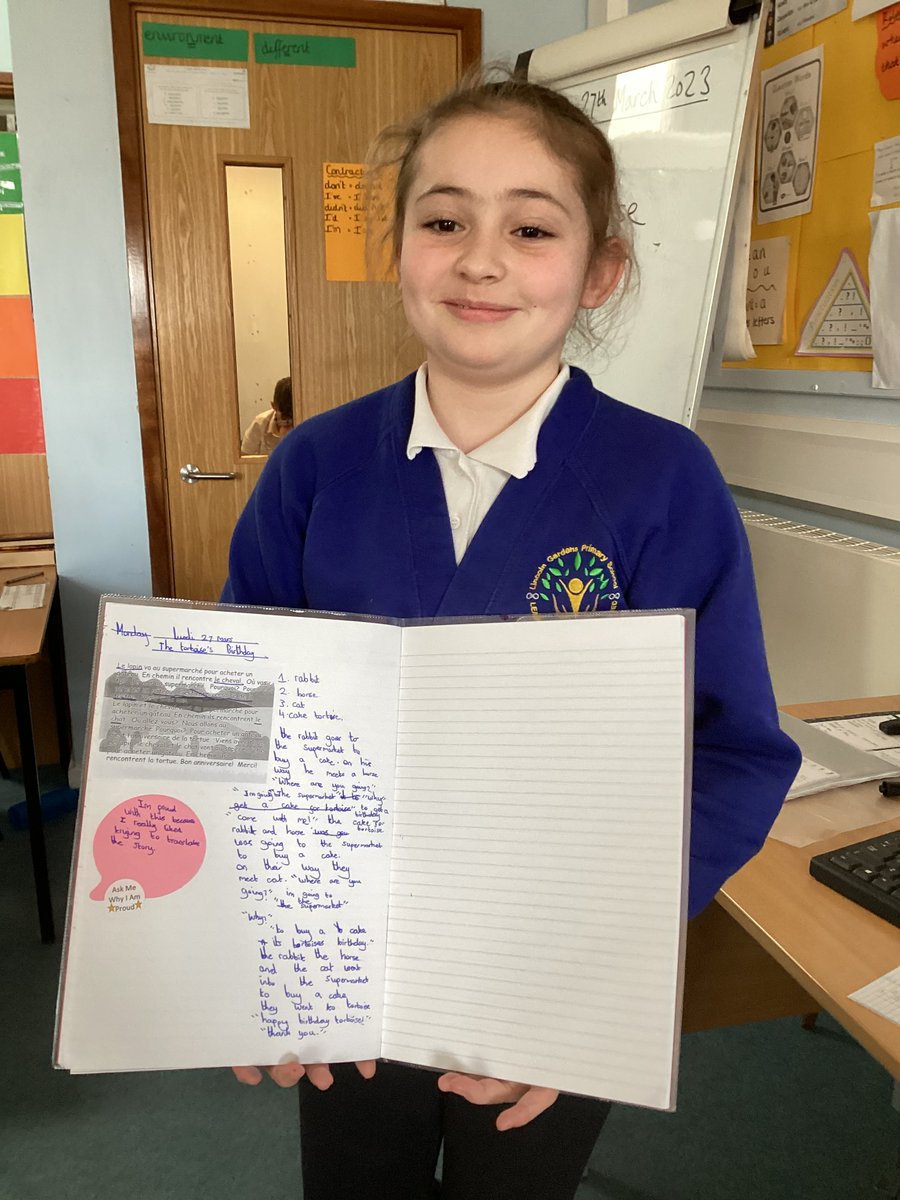 environment
different
Contract
don't = do
I've = I
didn't = du
I'd = I
I'm = I
27th March 2023
Question Words
Lincoln Gardens Primary School
Monday lundi 27 mars
The tortoise's Birthday
Le lapin va au supermarché pour acheter un
En chemin il rencontre le cheval. Où vas
Pourquoi? Pou
Le lapin
pour
acheter un gâteau. En chemin ils rencontrent le
chat. Où allez vous? Nous allons au
supermarché. Pourquoi? Pour acheter un
anniversaire de la tortue. Viens a
le cheval et le chat vont
acheter
En chemin
rencontrent la tortue. Bon anniversaire! Merci!
1. rabbit
2. horse
3. cat
4. cake tortoise.
the rabbit goes to
the supermarket to
buy a cake. On his
way he meets a horse
"Where are you going?"
"I'm going to the supermarket" "Why"
get a cake for tortoise" to get a
birthday
"come with me!" the cake for
tortoise
rabbit and horse was goi
was going to the supermarket
to buy a cake.
on their way they
meet cat. "Where are you
going?" im going to
"the supermarket"
"Why?"
"to buy a cake
its tortoises birthday."
the rabbit the horse
and the cat went
into the supermarket
to buy a cake
they went to tortoise
"happy birthday tortoise!"
"thank you."
I'm proud
with this because
I really liked
trying to translate
the story.
Ask Me
Why I Am
Proud